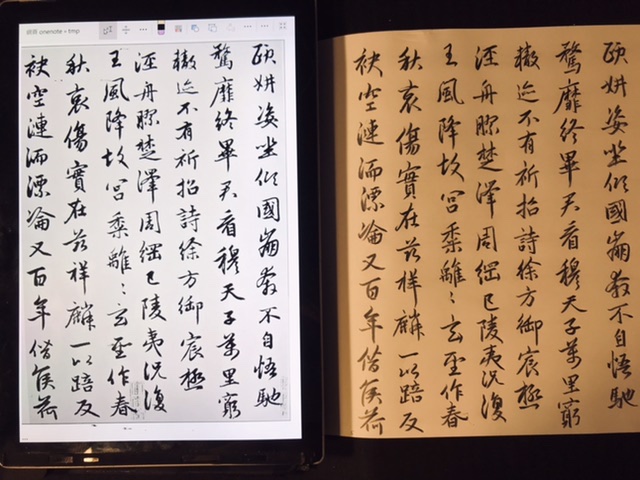 onenote › tmp
頤妍姿坐傾國崩奔不自悟馳
騖靡終畢君看穆天子萬里窮
轍迹不有祈招詩徐方御宸極
涇舟膠楚澤周綱已陵夷況復
王風降故宮黍離〻玄聖作春
秋哀傷實在茲祥麟一以踣反
袂空漣洏漂淪又百年僭侯荷
頤妍姿坐傾國崩奔不自悟馳
騖靡終畢君看穆天子萬里窮
轍迹不有祈招詩徐方御宸極
涇舟膠楚澤周綱已陵夷況復
王風降故宮黍離〻玄聖作春
秋哀傷實在茲祥麟一以踣反
袂空漣洏漂淪又百年僭侯荷